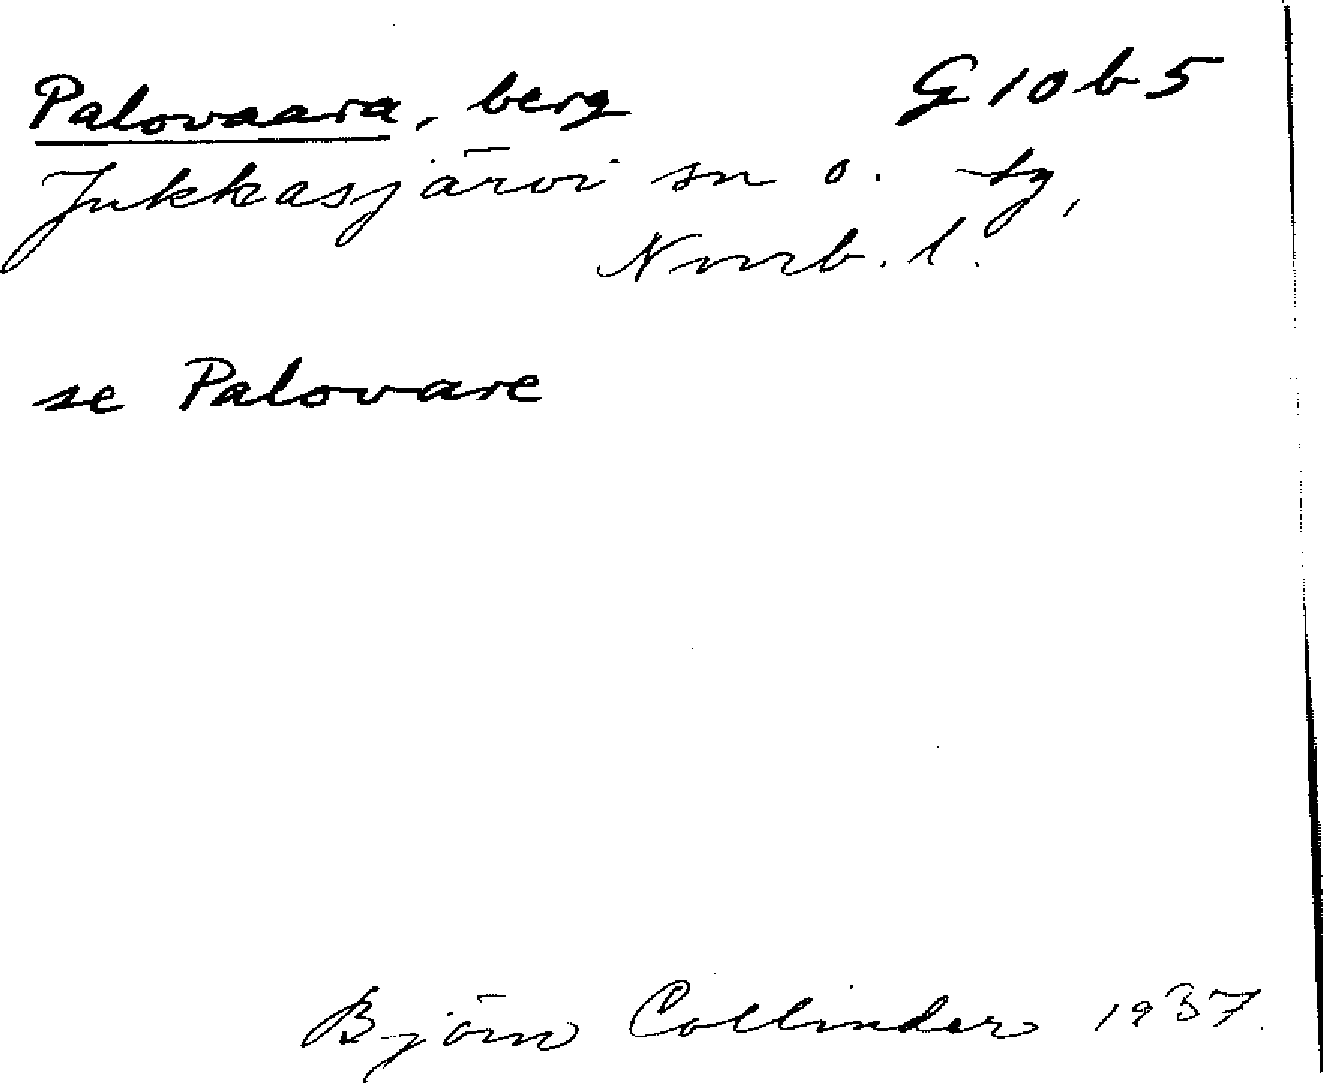 Palovaara, berg G10b5
Jukkasjärvi sn o. tg,
Norrb. l.
se Palovare
Björn Collinder 1937.